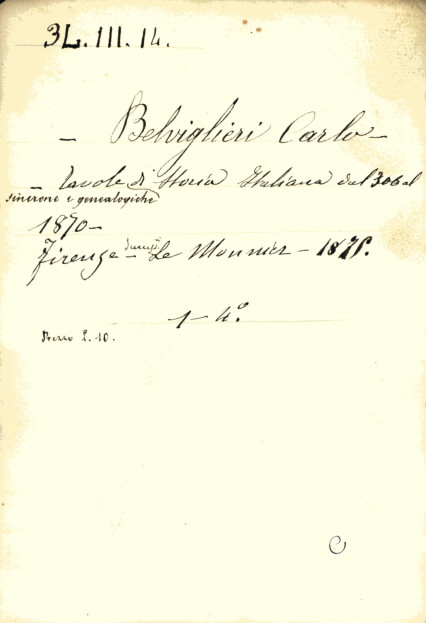 3L.III.14.
– Belviglieri Carlo –
– Tavole di Storia Italiana dal 306 al
sincrone e genealogiche
1870 –
Firenze – Le Monnier – 1875.
1 – 4º.
Prezzo L. 10.
C